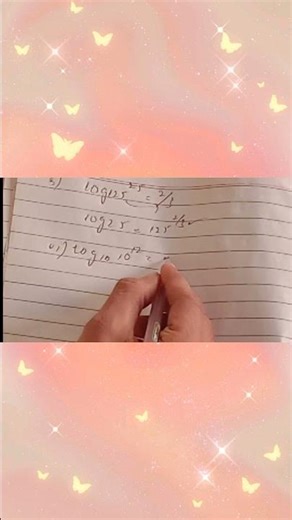 log125 25 = 2/3
log25 = 125 2/3
vi) log10 10 12 =